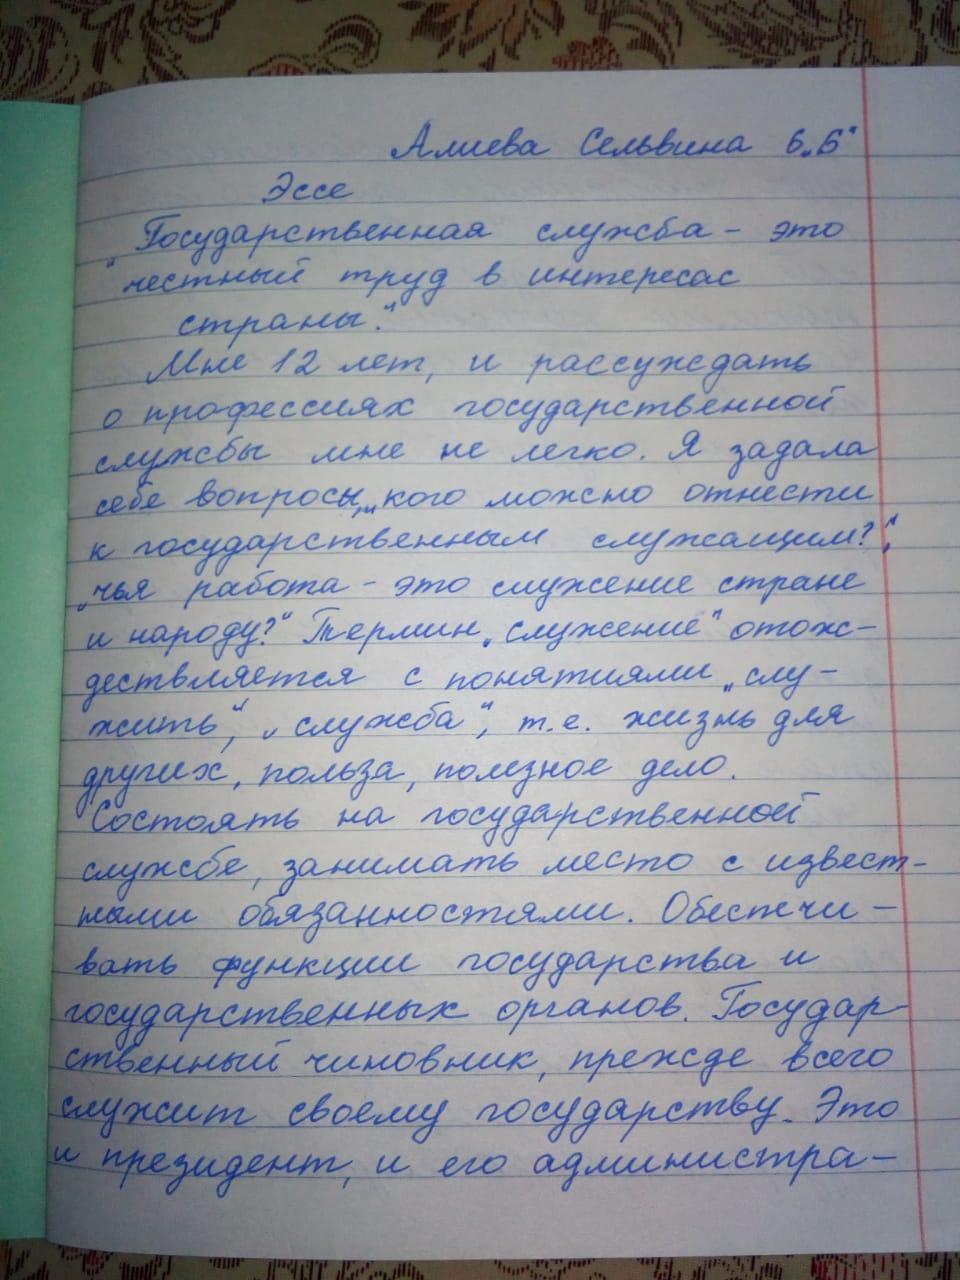 Алиева Сельвина 6 „Б"
Эссе
Государственная служба - это
"честный труд в интересах
страны."
Мне 12 лет, и рассуждать
о профессиях государственной
службы мне не легко. Я задала
себе вопросы, „кого можно отнести
к государственным служащим?",
„чья работа - это служение стране
и народу?" Термин „служение" отож-
дествляется с понятиями „слу-
жить", „служба", т.е. жизнь для
других, польза, полезное дело.
Состоять на государственной
службе, занимать место с извест-
ными обязанностями. Обеспечи-
вать функции государства и
государственных органов. Государ-
ственный чиновник, прежде всего
служит своему государству. Это
и президент, и его администра-